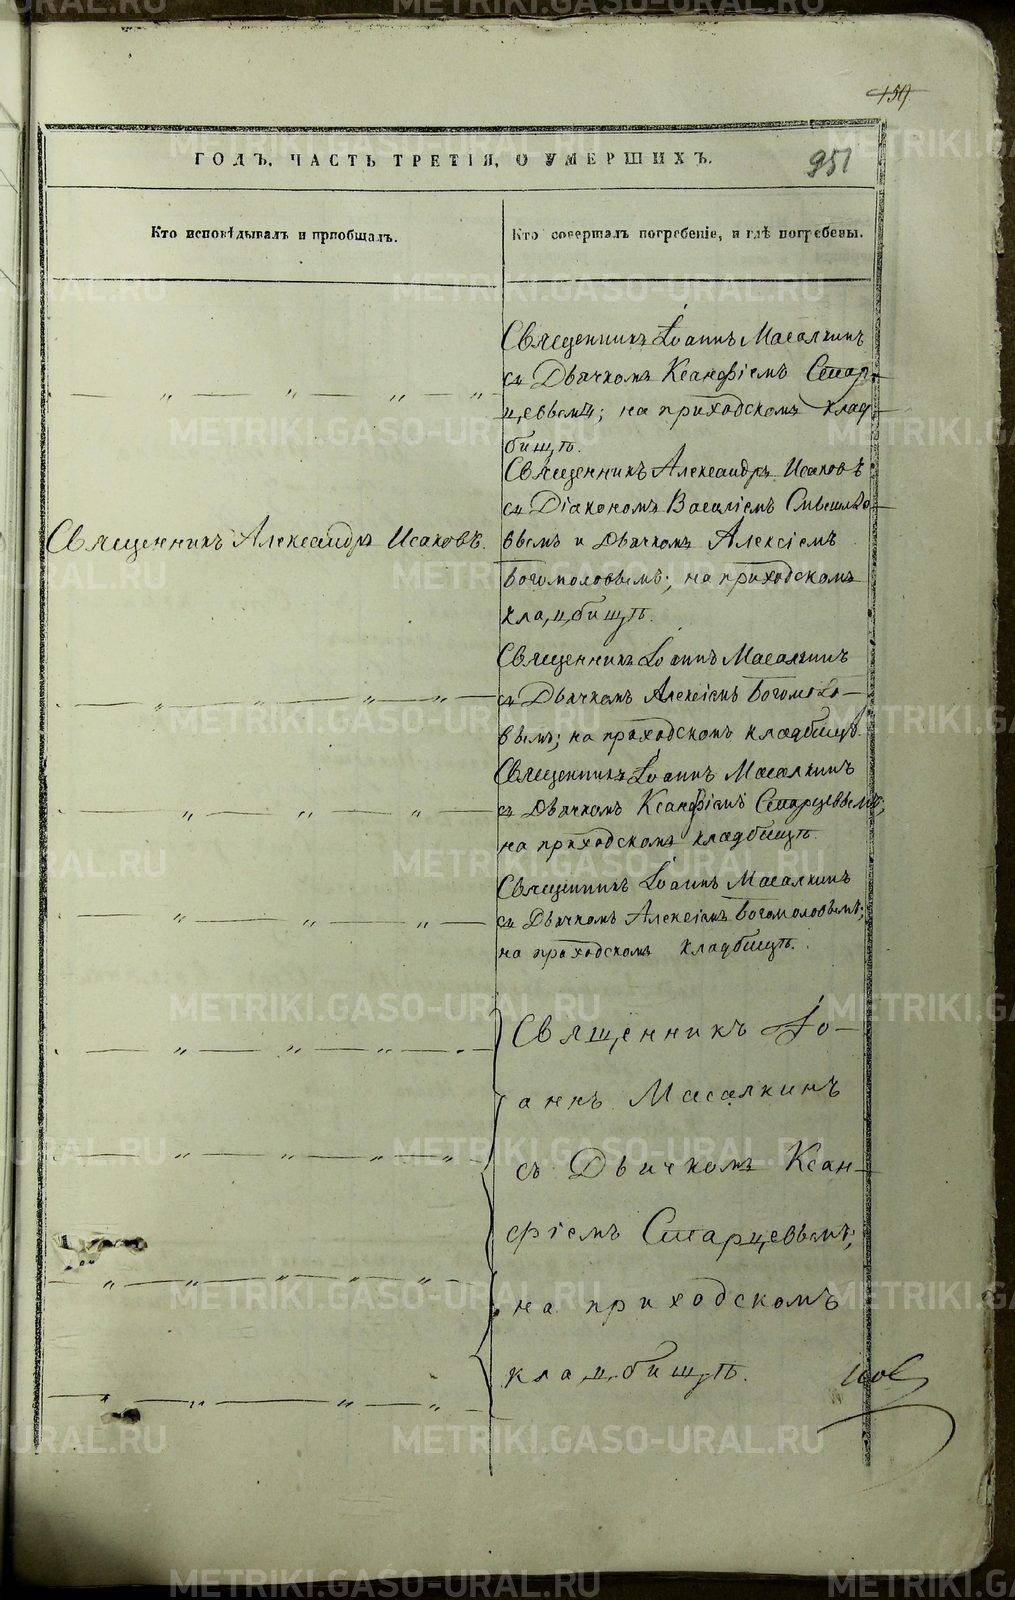 159
ГОДЪ, ЧАСТЬ ТРЕТІЯ, О УМЕРШИХЪ.
951
Кто исповѣдывалъ и пріобщалъ.
Кто совершалъ погребеніе, и гдѣ погребены.
Священникъ Іоаннъ Масалкинъ
съ Дьячкомъ Ксанфіемъ Стар-
цевымъ; на приходскомъ клад-
бищѣ.
Священникъ Александръ Исаковъ.
Священникъ Александръ Исаковъ
съ Діакономъ Василіемъ
вымъ и Дьячкомъ Алексіемъ
Богомоловымъ; на приходскомъ
кладбищѣ.
Священникъ Іоаннъ Масалкинъ
съ Дьячкомъ Алексіемъ Богомоло-
вымъ; на приходскомъ кладбищѣ.
Священникъ Іоаннъ Масалкинъ
съ Дьячкомъ Ксанфіемъ Старцевымъ;
на приходскомъ кладбищѣ.
Священникъ Іоаннъ Масалкинъ
съ Дьячкомъ Алексіемъ Богомоловымъ;
на приходскомъ кладбищѣ.
Священникъ Іо-
аннъ Масалкинъ
съ Дьячкомъ Ксан-
фіемъ Старцевымъ;
на приходскомъ
кладбищѣ.
METRIKI.GASO-URAL.RU